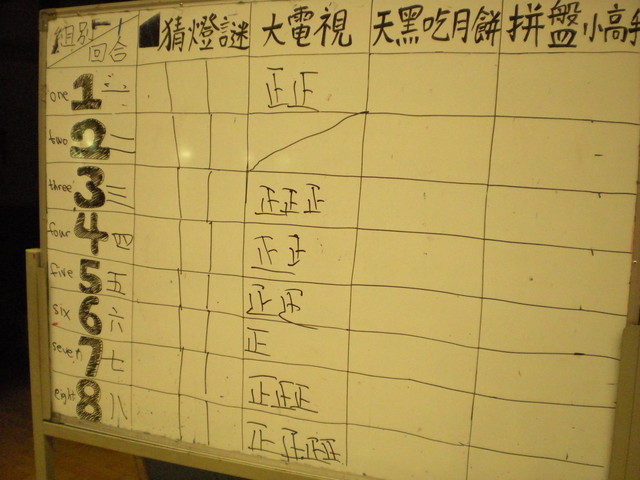 組別 回合 猜燈謎 大電視 天黑吃月餅 拼盤小高手
one 1 一 正正
two 2 二
three 3 三 正正正
four 4 四 正正
five 5 五 正正
six 6 六 正
seven 7 七 正正正
eight 8 八 正正正正